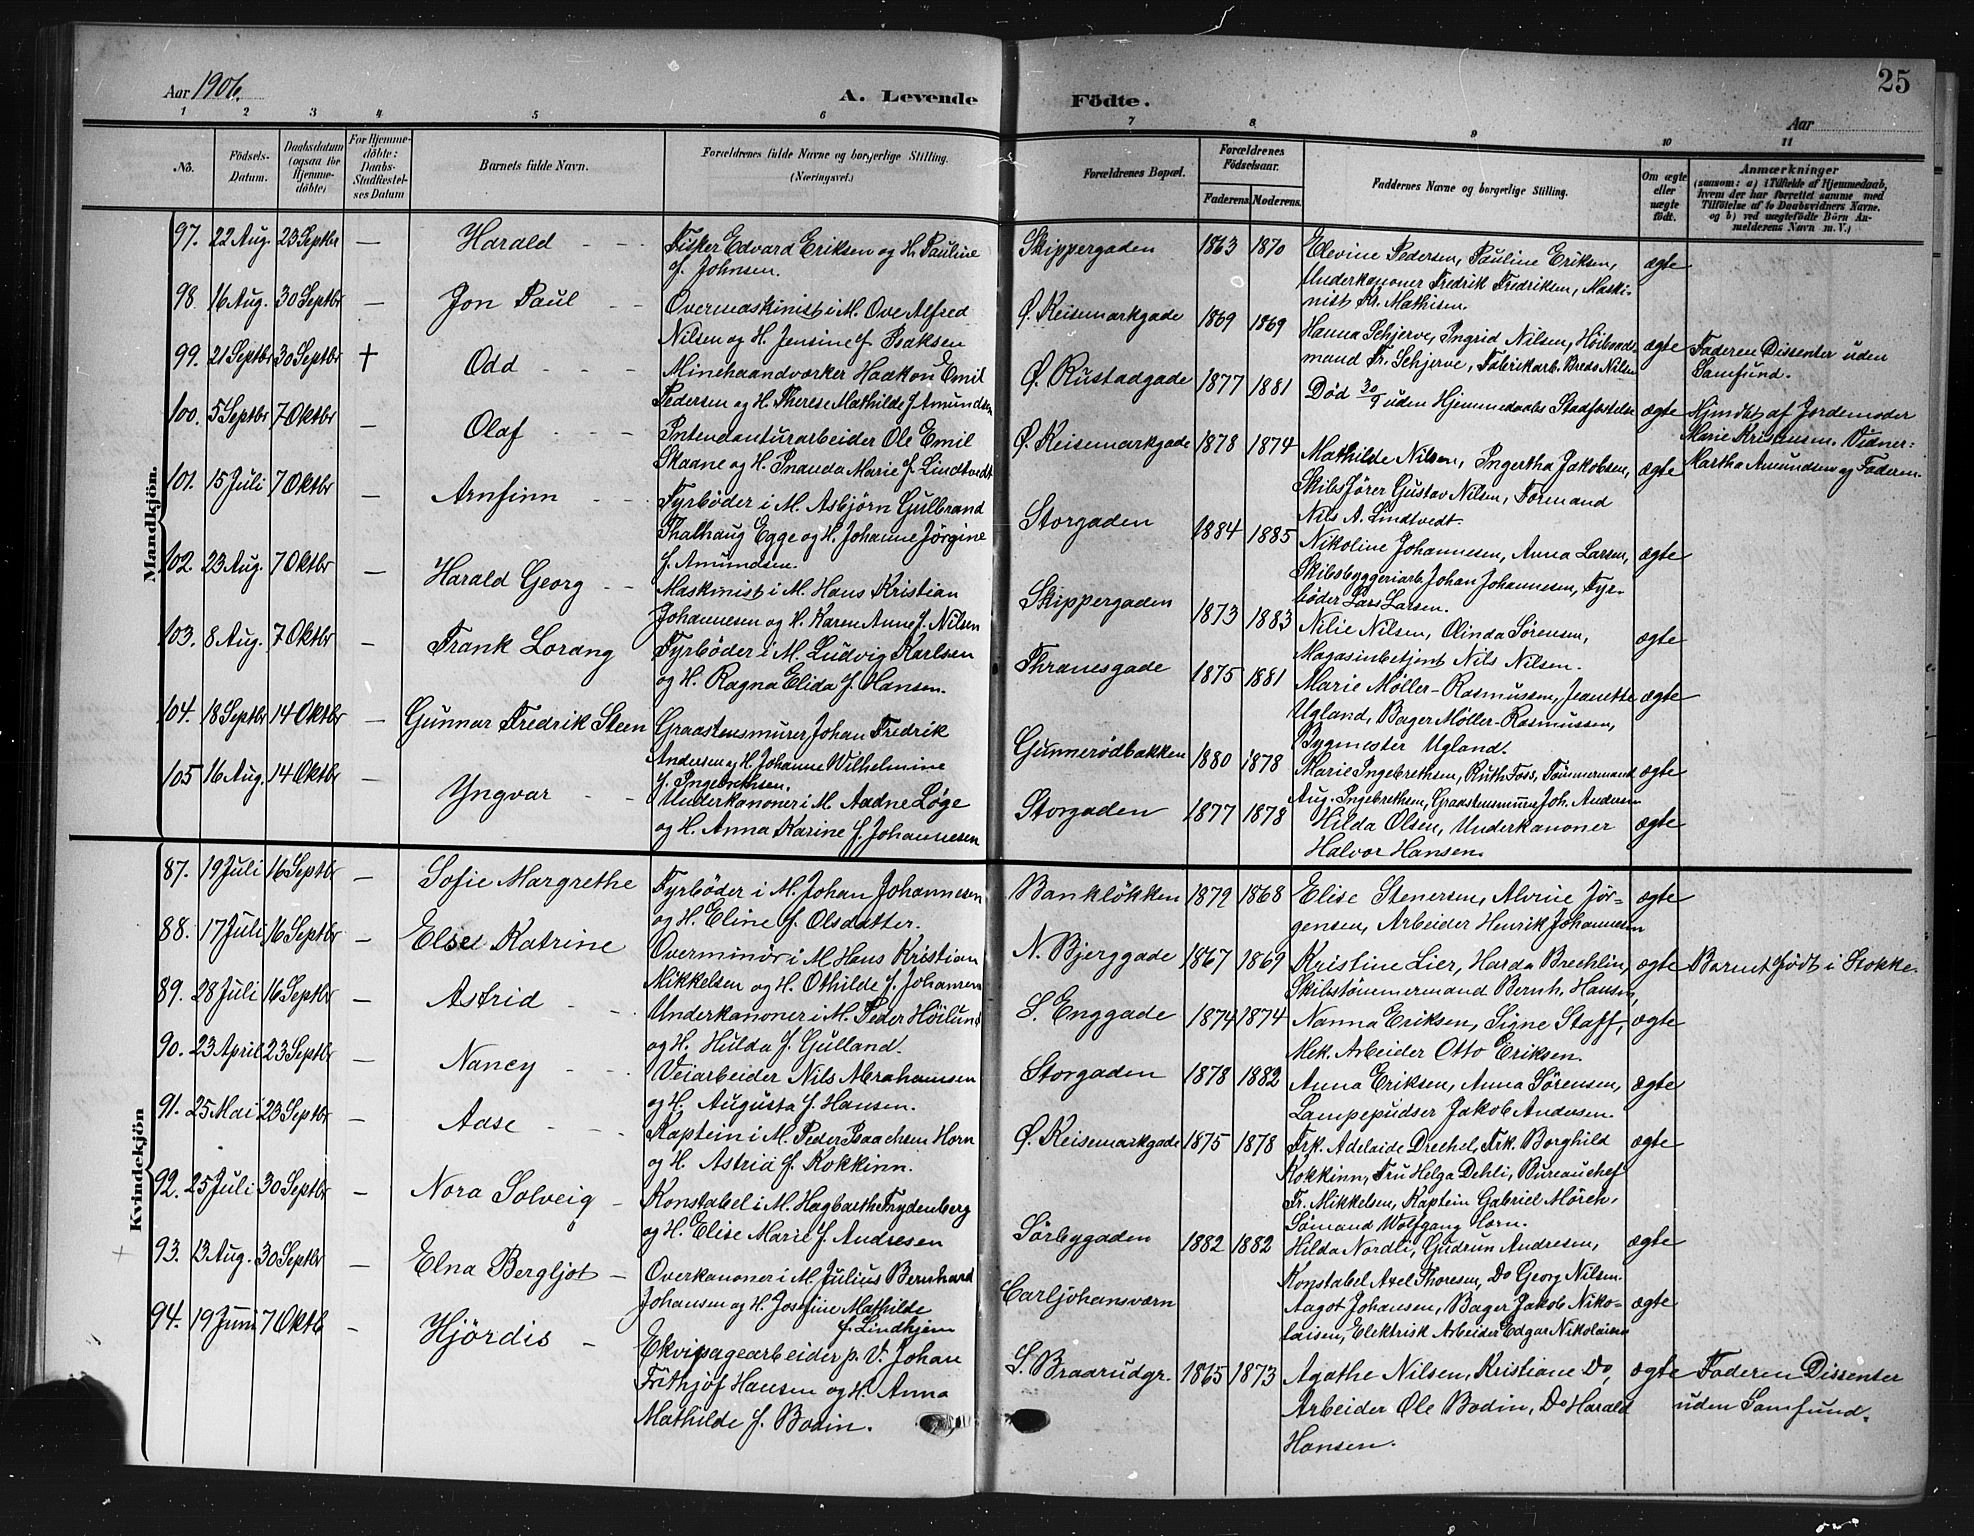 Aar 1906.
A. Levende Födte.
25
Aar
1 2 3 4 5 6 7 8 9 10 11
No.
Födsels-Datum.
Daabsdatum (ogsaa for Hjemmedöbte)
For Hjemmedöbte: Daabs-Stadfæstelses Datum
Barnets fulde Navn.
Forældrenes fulde Navne og borgerlige Stilling. (Næringsvei.)
Forældrenes Bopæl.
Forældrenes Födselsaar.
Faderens. Moderens.
Faddernes Navne og borgerlige Stilling.
Om ægte eller uægte födt.
Anmærkninger
(saasom: a) i Tilfælde af Hjemmedaab,
hvem der har forrettet samme med
Tilföielse af to Daabsvidners Navne.
og b) ved uægtefödte Börn An-
melderens Navn m. V.)
Mandkjön.
97. 22 Aug. 23 Septbr — Harald
Fisker Edvard Eriksen og H. Pauline
f. Johnsen.
Skippergaden 1863 1870
Elevine Pedersen, Pauline Eriksen,
Underkanoner Fredrik Fredriksen, Maski-
nist Kr. Mathisen.
ægte
98. 16 Aug. 30 Septbr — Jon Paul
Overmaskinist i M. Ove Alfred
Nilsen og H. Jensine f. Isaksen
Ø. Keisemarkgade 1869 1869
Hanna Schjerve, Ingrid Nilsen, Høibaads-
mand Fr. Schjerve, Fabrikarb. Breds Nilsen
ægte
Faderen Dissenter uden
Samfund.
99. 21 Septbr 30 Septbr † Odd
Minehaandværker Haakon Emil
Pedersen og H. Therese Mathilde f. Amundsen
Ø. Rustadgade 1877 1881
Død 30/9 uden Hjemmedaabs Stadfæstelse
ægte
Hjmdbt af Jordemoder
Marie Kristensen. Vidner:
Martha Amundsen og Faderen
100. 5 Septbr 7 Oktbr — Olaf
Intendanturarbeider Ole Emil
Skaane og H. Inanda Marie f. Lindtvedt
Ø. Keisemarkgade 1878 1874
Mathilde Nilsen, Ingertha Jakobsen,
Skibsfører Gustav Nilsen, Formand
Nils A. Lindtvedt.
ægte
101. 15 Juli 7 Oktbr — Arnfinn
Fyrbøder i M. Asbjörn Gulbrand
Thalhaug Egge og H. Johanne Jörgine
f. Amundsen.
Storgaden 1884 1885
Nikoline Johannesen, Anna Larsen,
Skibsbyggeriarb. Johan Johannesen, Fyr-
bøder Lars Larsen.
ægte
102. 23 Aug. 7 Oktbr — Harald Georg
Maskinist i M. Hans Kristian
Johannesen og H. Karen Anne f. Nilsen
Skippergaden 1873 1883
Nilie Nilsen, Olinda Sørensen,
Magasinbetjent Nils Nilsen.
ægte
103. 8 Aug. 7 Oktbr — Frank Lorang
Fyrbøder i M. Ludvig Karlsen
og H. Ragna Elida f. Hansen.
Thranesgade 1875 1881
Marie Møller-Rasmussen, Jeanette
Ugland, Bager Møller-Rasmussen,
Bygmester Ugland.
ægte
104. 18 Septbr 14 Oktbr — Gunnar Fredrik Steen
Graastensmurer Johan Fredrik
Andersen og H. Johanne Wilhelmine
f. Ingebrethsen.
Gunnerødbakken 1880 1878
Marie Ingebrethsen, Ruth Foss, Tømmermand
Aug. Ingebrethsen, Graastensmurer Joh. Andersen
ægte
105 16 Aug. 14 Oktbr — Yngvar
Underkanoner i M. Aadne Løge
og H. Anna Karine f. Johannesen
Storgaden 1877 1878
Hilda Olsen, Underkanoner
Halvor Hansen.
ægte
Kvindekjön
87. 19 Juli 16 Septbr — Sofie Margrethe
Fyrbøder i M. Johan Johannesen
og H. Eline f. Olsdatter.
Bankløkken 1872 1868
Elise Stenersen, Alvine Jör-
gensen, Arbeider Henrik Johannesen
ægte
88. 17 Juli 16 Septbr — Else Katrine
Overminör i M. Hans Kristian
Mikkelsen og H. Othilde f. Johansen
N. Bjerggade 1867 1869
Kristine Lier, Harda Brechlin,
Skibstömmermand Bernh. Hansen,
ægte
Barnet født i Stokke.
89. 28 Juli 16 Septbr — Astrid
Underkanoner i M. Peder Höilund
og H. Hulda f. Gulland.
S. Enggade 1874 1874
Nanna Eriksen, Signe Staff,
Mek. Arbeider Otto Eriksen.
ægte
90. 23 April 23 Septbr — Nancy
Veiarbeider Nils Abrahamsen
og H. Augusta f. Hansen.
Storgaden 1878 1882
Anna Eriksen, Anna Sørensen,
Lampepudser Jakob Andersen.
ægte
91. 25 Mai 23 Septbr — Aase
Kaptein i M. Peder Isachsen Horn
og H. Astrid f. Kokkinn.
Ø. Keisemarkgade 1875 1878
Frk. Adelaide Drechel, Frk. Borghild
Kokkinn, Fru Helga Dehli, Bureauchef
Fr. Mikkelsen, Kaptein Gabriel Mörch,
Sømand Wolfgang Horn.
ægte
92. 25 Juli 30 Septbr — Nora Solveig
Konstabel i M. Hagbarth Frydenberg
og H. Elise Marie f. Andresen
Sörbygaden 1882 1882
Hilda Nordli, Gudrun Andresen,
Konstabel Axel Thoresen, Do Georg Nilsen.
ægte
93. 13 Aug. 30 Septbr — Elna Bergljot
Overkanoner i M. Julius Bernhard
Johansen og H. Josefine Mathilde
f. Lindhjem
Carljohansværn
Aagot Johansen, Bager Jakob Niko-
laisen, Elektrisk Arbeider Edgar Nikolaisen
ægte
94. 19 Juni 7 Oktb — Hjördis
Ekvipagearbeider p. V. Johan
Frithjof Hansen og H. Anna
Mathilde f. Bodin.
S. Braarudgr. 1865 1873
Agathe Nilsen, Kristiane Do,
Arbeider Ole Bodin, Do Harald
Hansen.
ægte
Faderen Dissenter
uden Samfund.